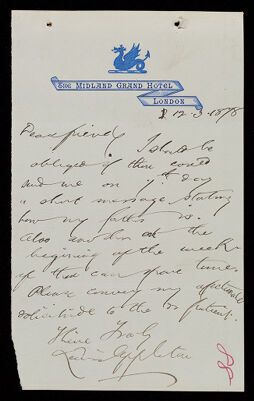 THE MIDLAND GRAND HOTEL
LONDON
12.3.1878
Dear friend I should be
obliged if thou could
send me on 7th day
a short message stating
how my father is.
Also now &
 the
beginning of the week
if thou can spare time.
Please convey my affectionate
solicitude to the dr patient.
Thine truly
Lewis Appleton